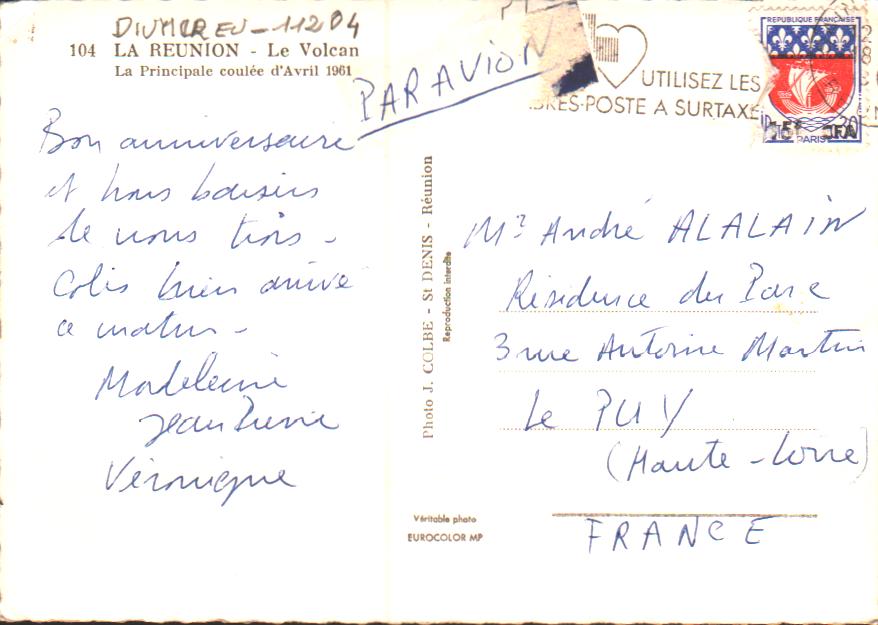 DIUMCREU-11204
104 LA REUNION - Le Volcan
La Principale coulée d'Avril 1961
PAR AVION
UTILISEZ LES
BRES-POSTE A SURTAXE
REPUBLIQUE FRANÇAISE
PARIS
Bon anniversaire
et bons baisers
de nous trois -
Colis bien arrivé
ce matin -
Madeleine
Jean Pierre
Véronique
Photo J. COLBE - St DENIS - Réunion
Reproduction interdite
Véritable photo
EUROCOLOR MP
Mr André ALALAIN
Résidence du Parc
3 rue Antoine Martin
Le PUY
(Haute-Loire)
FRANCE